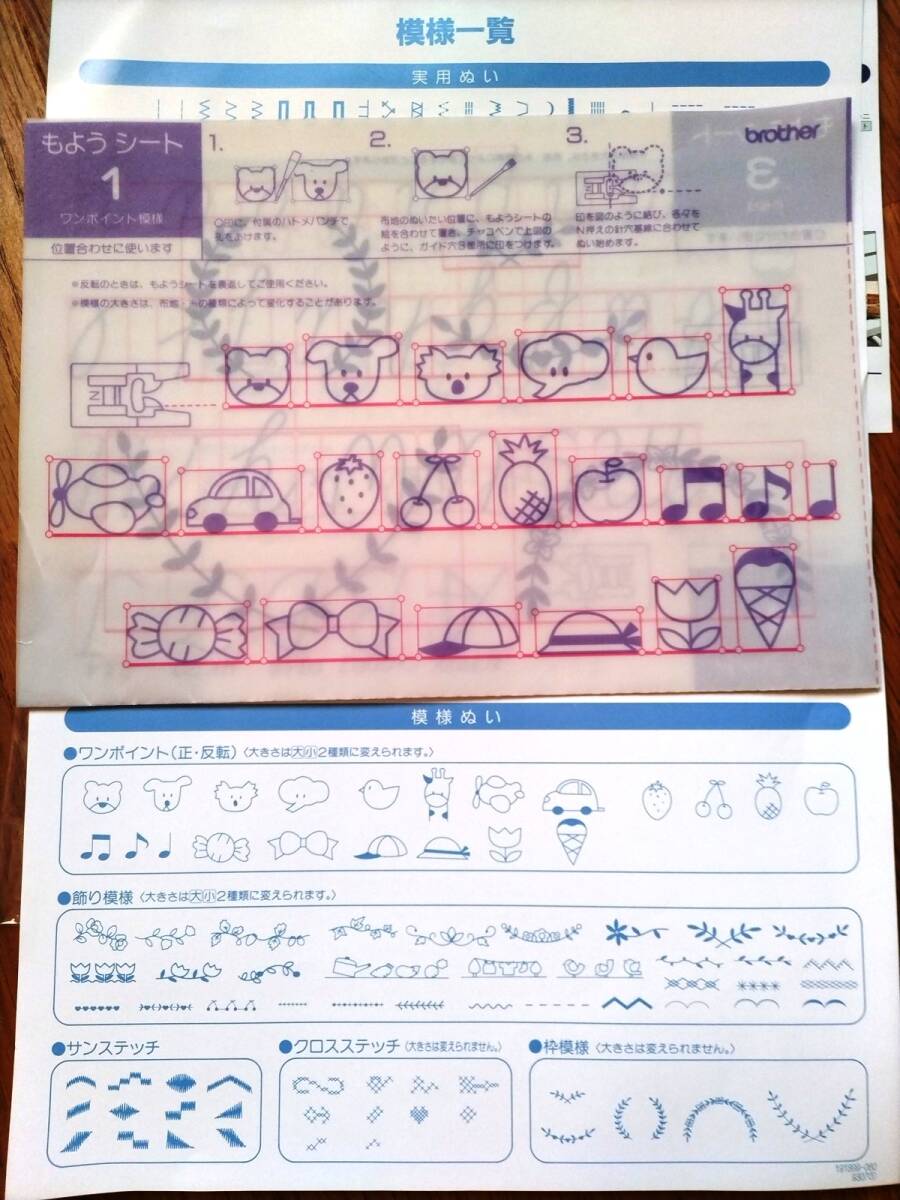 模様一覧
実用ぬい
もよう シート
1
ワンポイント模様
位置合わせに使います
1.
○印に、付属のハトメパンチで
穴をあけます。
2.
布地のぬいたい位置に、もようシートの
絵を合わせて置き、チャコペンで上図の
ように、ガイド穴各箇所に印をつけます。
3.
印を図のように結び、各々を
N押えの針穴基線に合わせて
ぬい始めます。
brother
3
※反転のときは、もようシートを裏返してご使用ください。
※模様の大きさは、布地・糸の種類によって変化することがあります。
N
模様ぬい
●ワンポイント(正・反転)〈大きさは大小2種類に変えられます。〉
●飾り模様〈大きさは大小2種類に変えられます。〉
●サンステッチ
●クロスステッチ〈大きさは変えられません。〉
●枠模様〈大きさは変えられません。〉